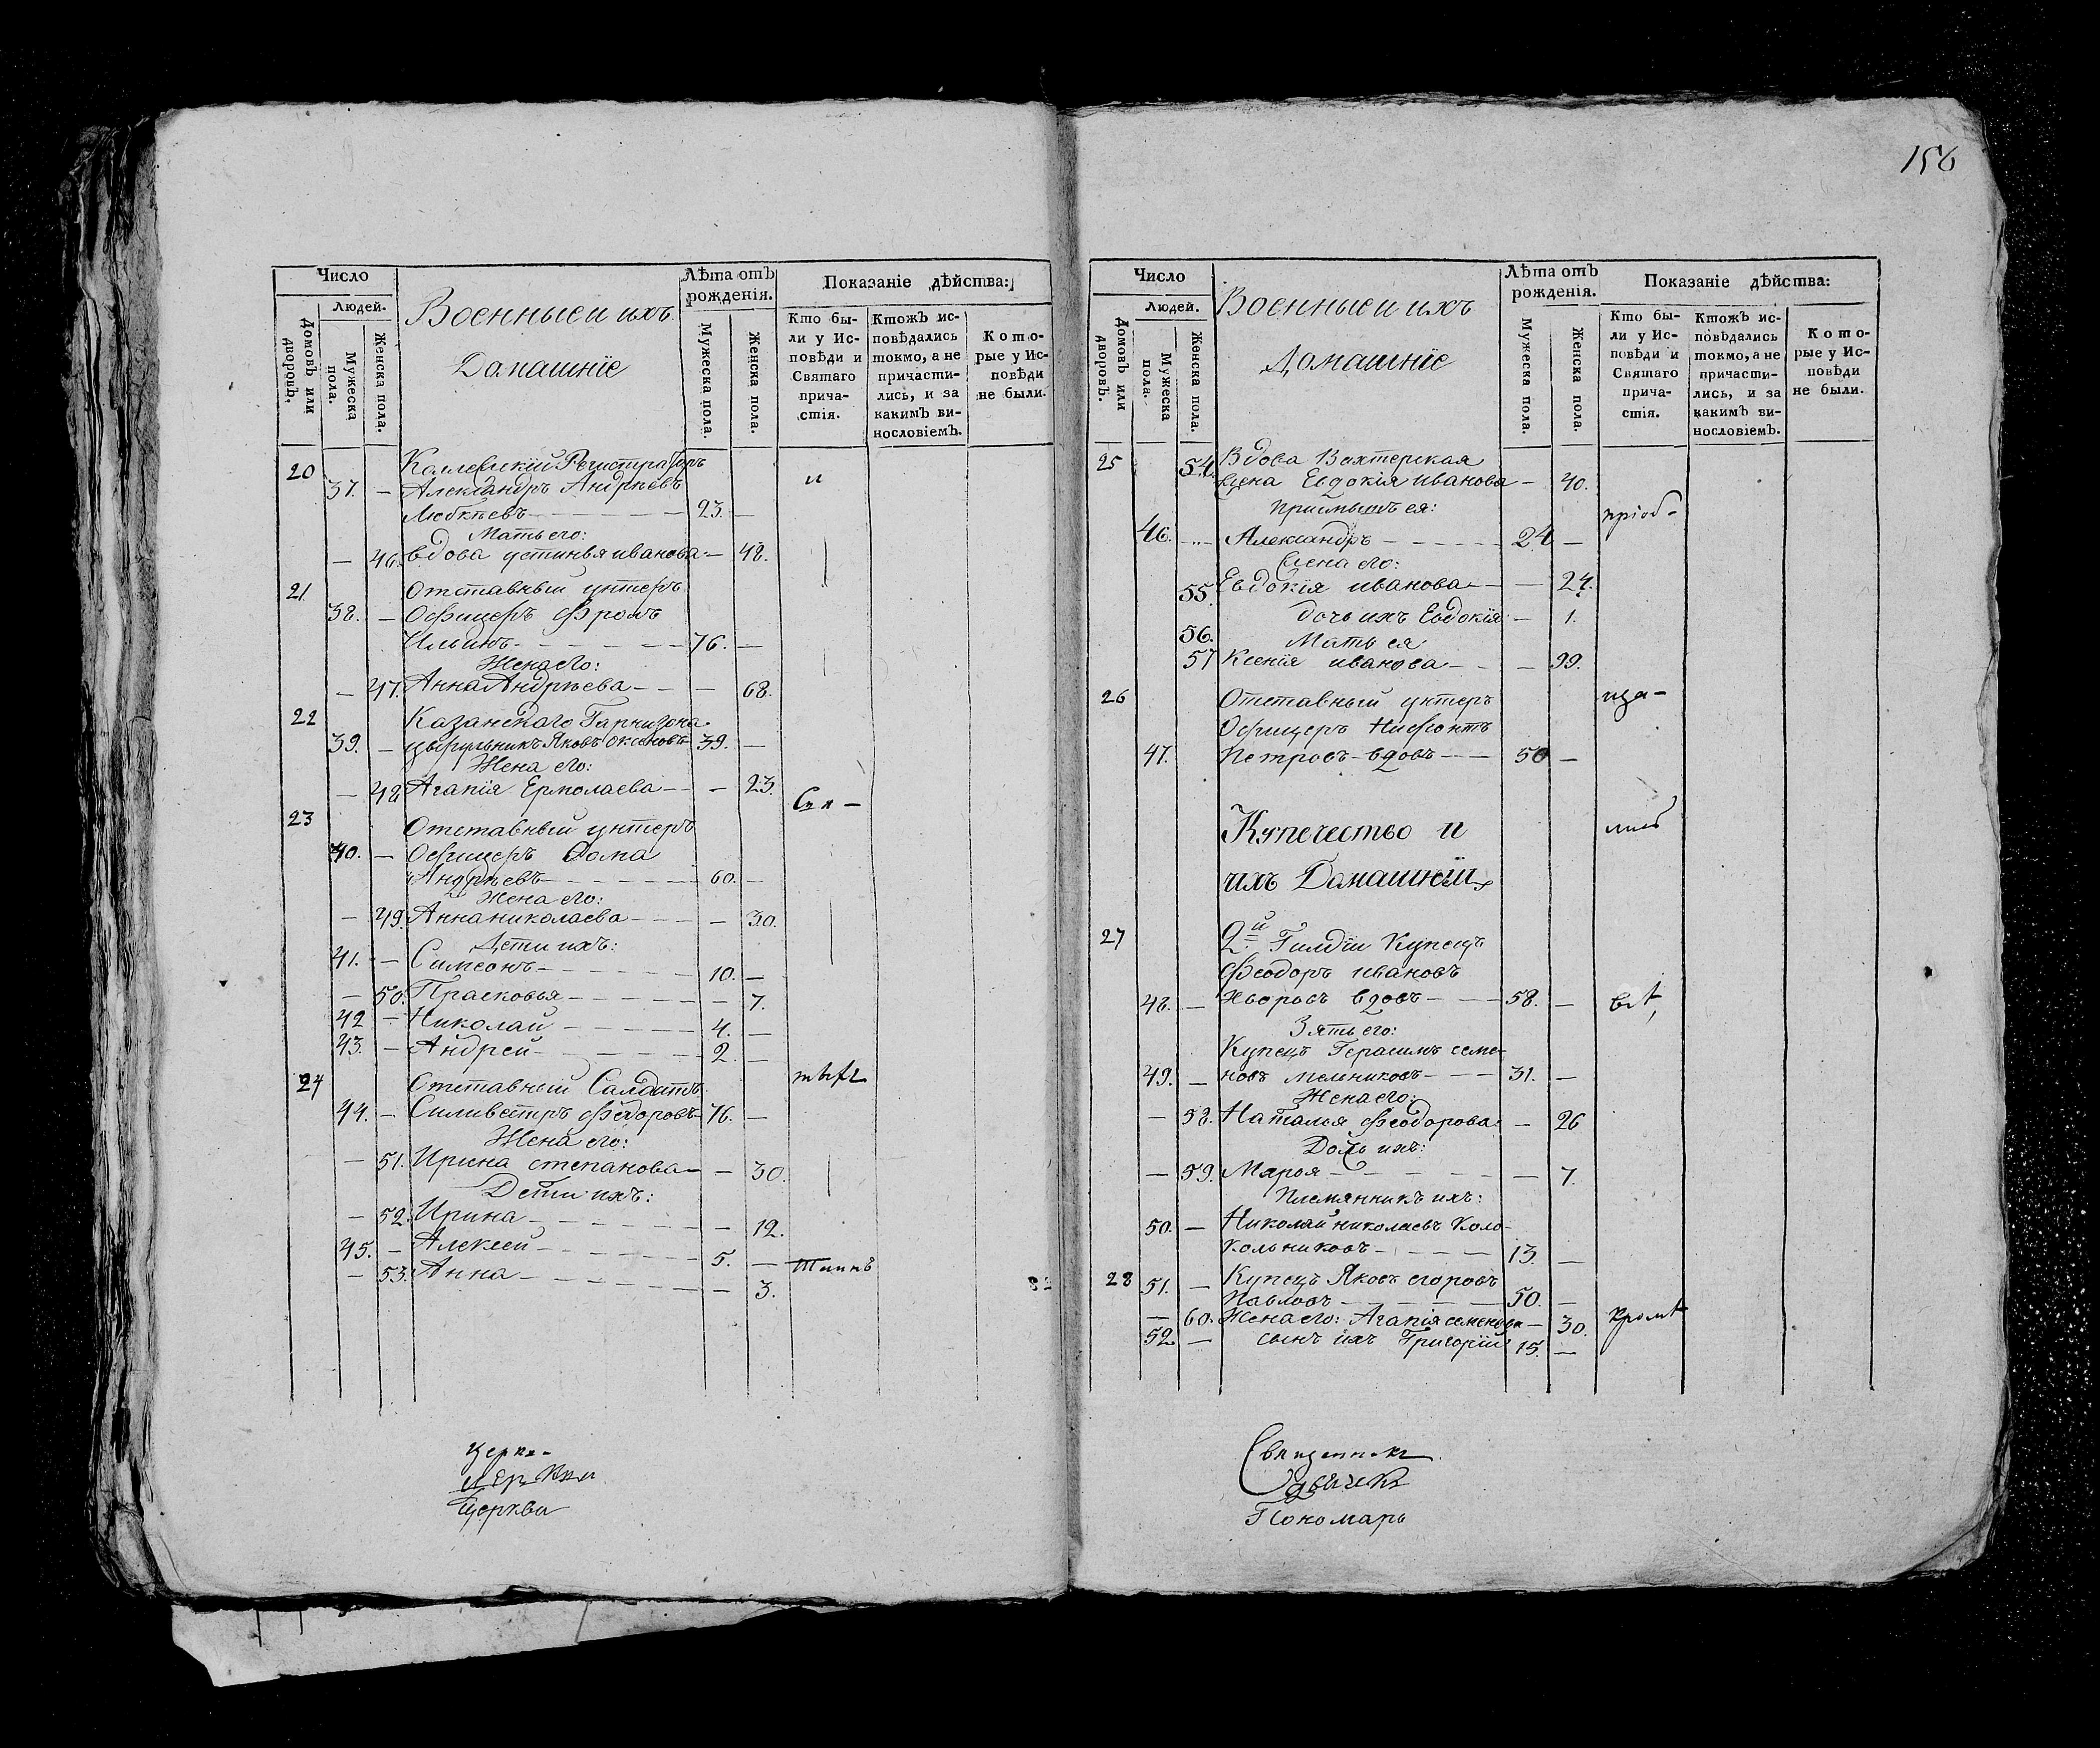 Число
Людей.
Домовъ или дворовъ.
Мужеска пола.
Женска пола.
Военные и ихъ
Домашнїе
Лѣта отъ рожденїя.
Мужеска пола.
Женска пола.
Показанїе дѣйства:
Кто были у Исповѣди и Святаго причастїя.
Ктожъ исповѣдались токмо, а не причастились, и за какимъ винословїемъ.
Которые у Исповѣди не были.
20 Коллежскїй Регистраторъ
37. — Александръ Андрѣевъ и
23. —
Мать его:
— 46. вдова устинья иванова — 48.
21 Отставный унтеръ
38. — Офицеръ Фролъ
Ильинъ 76. —
Жена его:
— 47. Анна Андрѣева — 68.
22 Казанскаго Гарнизона
39. — цырульникъ Яковъ 39. —
Жена его:
— 48 Агапїя Ермолаева — 23.
23 Отставный унтеръ
40. — Офицеръ Фома
Андрѣевъ 60. —
Жена его:
— 49. Анна николаева — 30.
Дети ихъ:
41. — Симеонъ 10. —
— 50. Прасковья — 7.
42 — Николай 4. —
43. — Андрей 2. —
24 Отставный Салдатъ
44. — Силивестръ Федоровъ 76. —
Жена его:
— 51. Ирина степанова — 30.
Дети ихъ:
— 52. Ирина — 12.
45. — Алексей 5. —
— 53. Анна — 3.
Церкви
156
Число
Людей.
Домовъ или дворовъ.
Мужеска пола.
Женска пола.
Военные и ихъ
Домашнїе
Лѣта отъ рожденїя.
Мужеска пола.
Женска пола.
Показанїе дѣйства:
Кто были у Исповѣди и Святаго причастїя.
Ктожъ исповѣдались токмо, а не причастились, и за какимъ винословїемъ.
Которые у Исповѣди не были.
25 54. Вдова Вахтерская
жена Евдокїя иванова — 40.
Прїемышъ ея: прїоб-
46. Александръ 24 —
Жена его:
55. Евдокїя иванова — 24.
56. дочь ихъ Евдокїя — 1.
Мать ея
57 Ксенїя иванова — 99.
26 Отставный унтеръ ща-
Офицеръ Нифонтъ
47. Петровъ вдовъ 50 —
Купечество и
ихъ Домашнїи
27 2й Гилдїи Купецъ
Феодоръ ивановъ
48. — вдовъ 58. — всѣ
Зять его:
Купецъ Герасимъ семе-
49. — новъ мельниковъ 31. —
Жена его:
— 58. Наталья Феодорова — 26
Дочь ихъ:
— 59. Марья — 7.
Племянникъ ихъ:
50. — Николай николаевъ Коло-
кольниковъ 13. —
28 51. — Купецъ Яковъ егоровъ
Павловъ 50. —
— 60. Жена его: Агапїя семенова — 30. кромѣ
52 — сынъ ихъ Григорїй 15. —
Священникъ
Дьячекъ
Пономарь